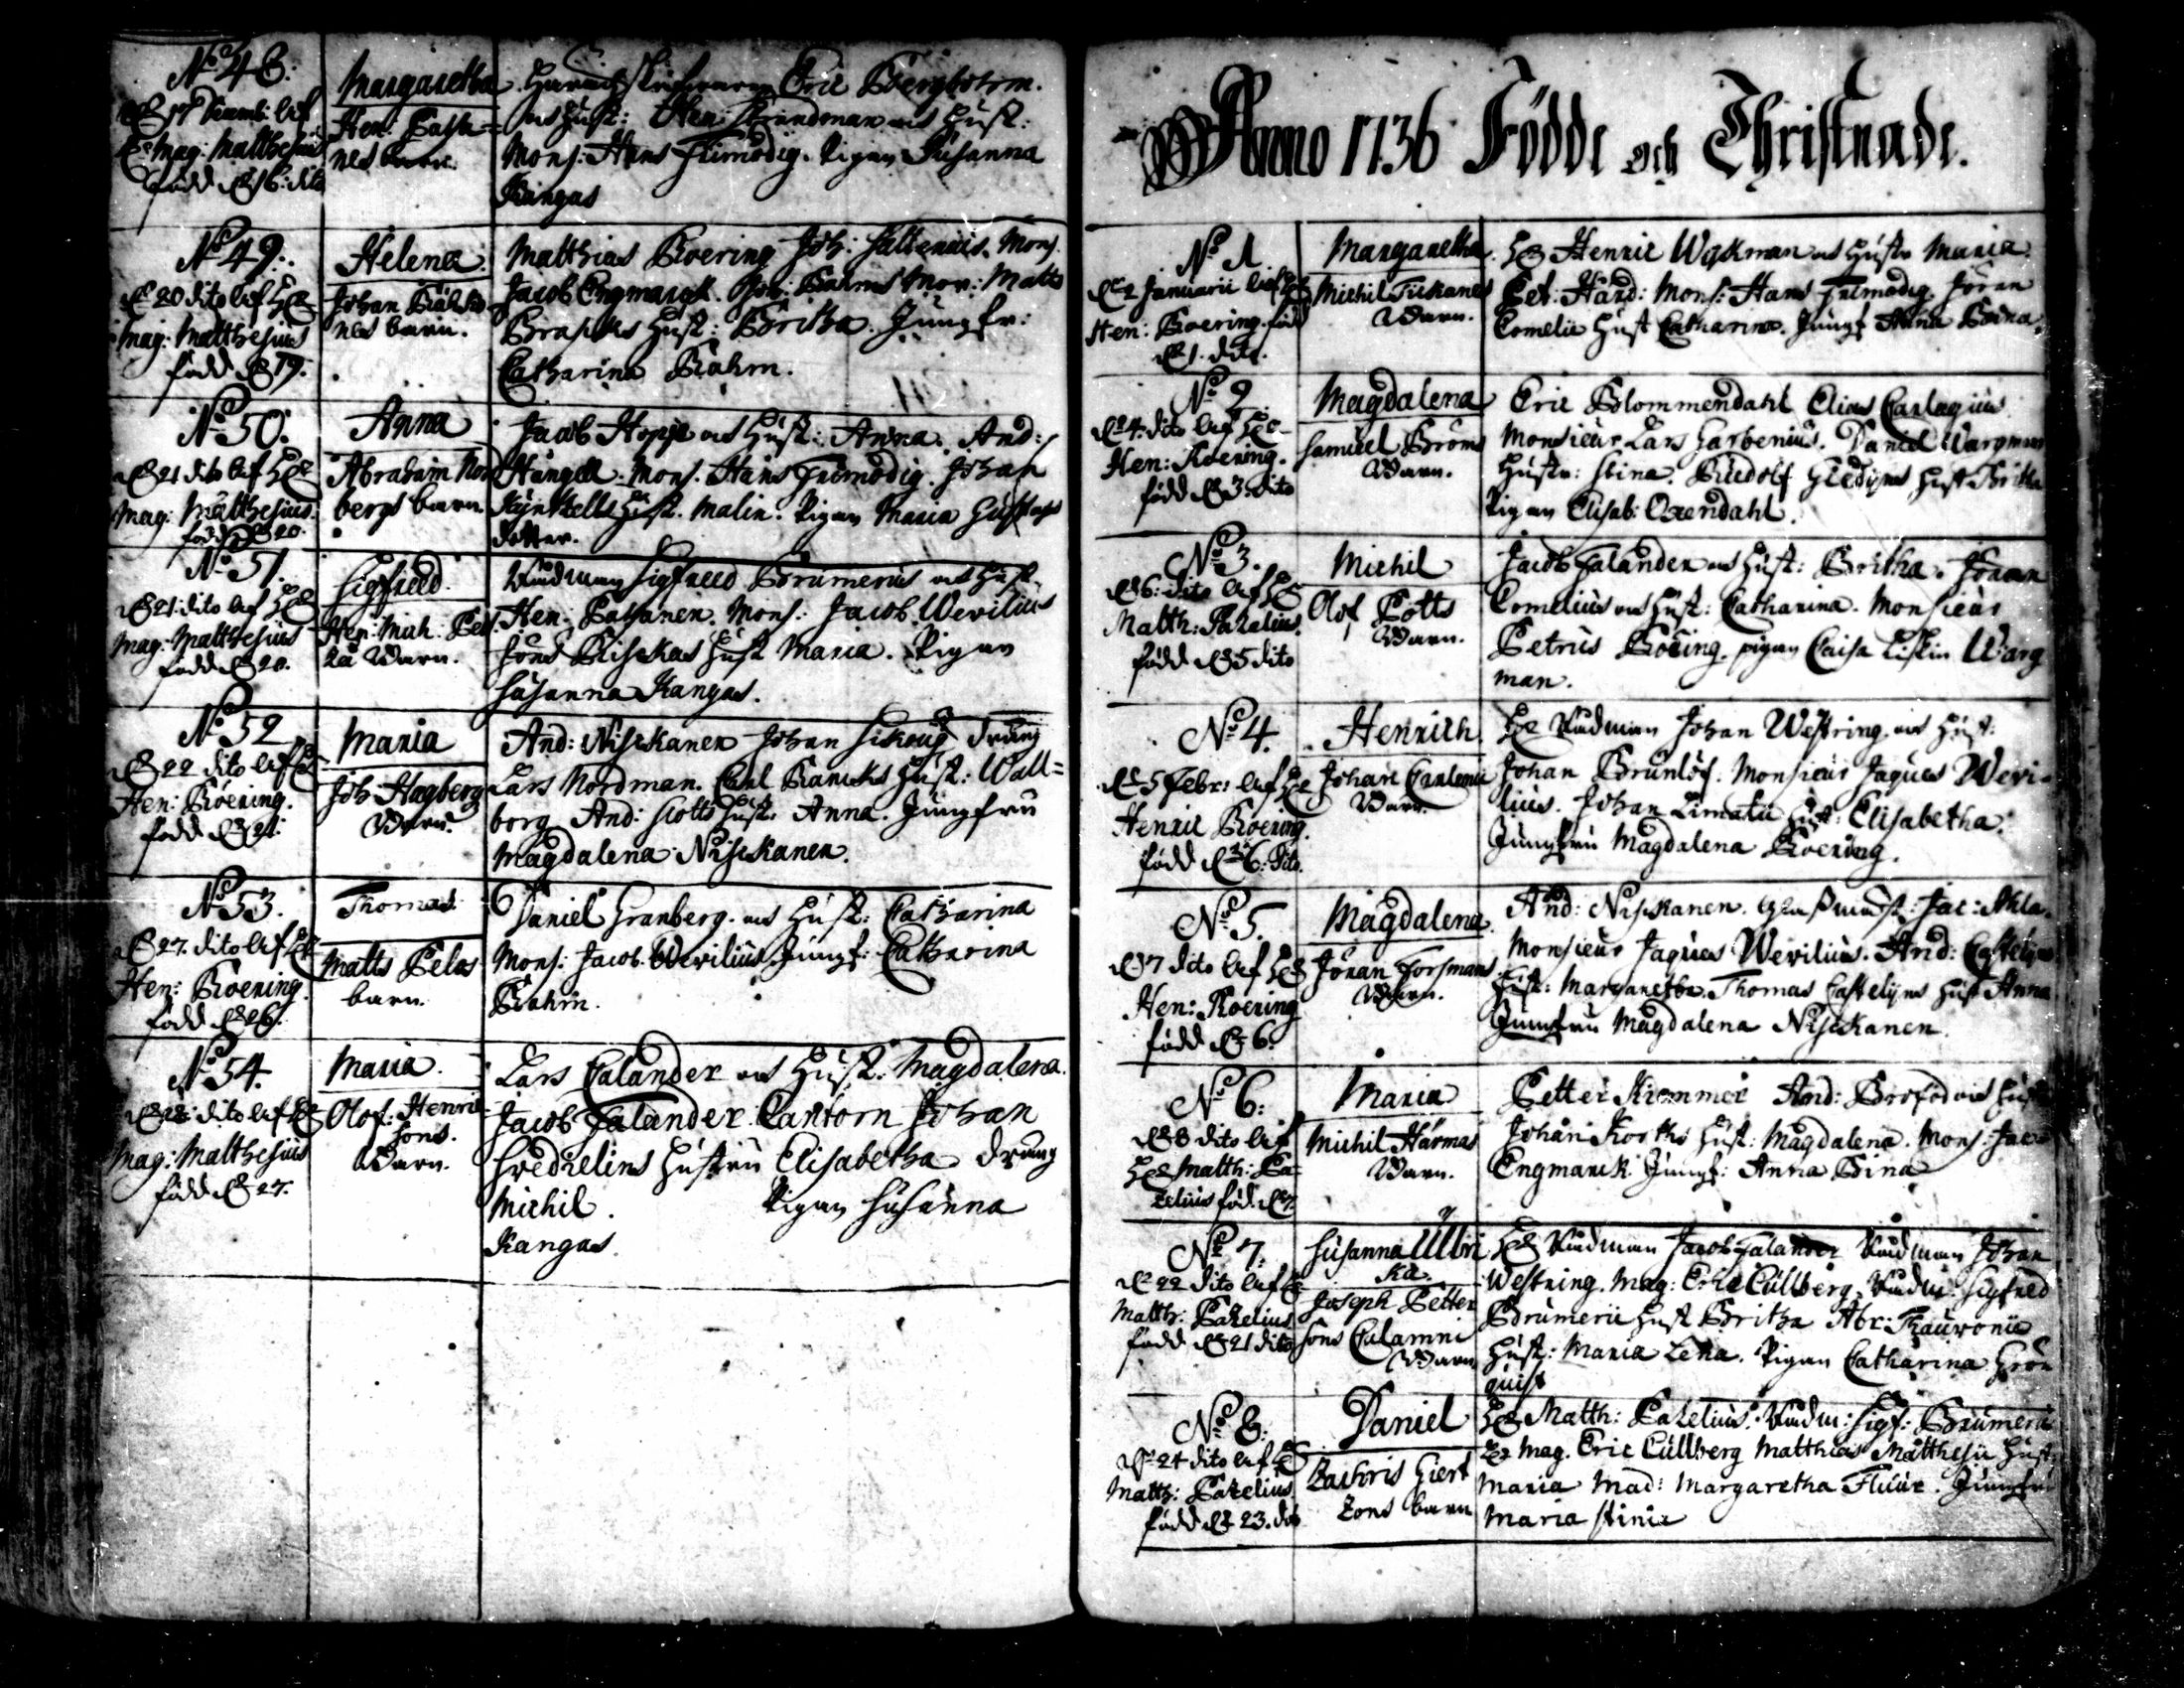 No 48.
Mag: Matthesius
född d. 16: dito
Margaretha
Hen: 
nes barn.
Eric Bergbohm.
Hust: Hen: Strandman Hust:
Mons: Hans Frimodig. Pigan Susanna
Kangas
No 49.
d. 20 dito af H:
Mag: Matthesius
född d. 19.
Helena
Johan
nes barn.
Matthias Roering Joh: Salbenius. Mons.
Jacob Engmarck. Mons: Matts
Hust: Britha. Jungfr:
Catharina Rahm.
No 50.
d. 21 dito af H:
Mag: Matthesius.
född d. 20.
Anna
Abraham Nor
bergs barn
Jacob Hopje Hust: Anna. And:
Hängell. Mons. Hans Frimodig. Johan
Hust. Malin. Pigan Maria Gustafs
dotter.
No 51.
d. 21: dito af H:
Mag: Matthesius
född d. 20.
Sigfried.
Hen: Mich: Pel
ka Barn.
Rådman Sigfried Brumerus Hust.
Hen: Pathanen. Mons: Jacob Wevilius
Hust Maria. Pigan
Susanna Kangas.
No 52
d. 22 dito af H:
Hen: Roering.
född d. 21:
Maria
Joh Hagberg
Barn.
And: Niskanen Johan dräng
Lars Nordman. Carl Hust: Wall=
borg And: Slotts Hust: Anna. Jungfru
Magdalena Niskanen.
No 53.
d. 27. dito af H:
Hen: Roering.
född d. 26.
Thomas
Matts Pelas
barn.
Daniel Granberg. Hust: Catharina
Mons: Jacob Wevilius. Jungf: Catharina
Rahm.
No 54.
d. 28: dito af H:
Mag: Matthesius
född d. 27.
Maria.
Olof: Henric
sons.
Barn.
Lars Calander Hust: Magdalena.
Jacob Falander Cantorn Johan
Hustru Elisabetha dräng
Michil. Pigan Susanna
Kangas
Anno 1736 Födde och Christnade.
No 1
d. 2 Januarii af H:
Hen: Roering. född
d. 1. dito.
Margaretha.
Michil Tickanes
Barn.
H: Henric Wykman Hustr Maria.
Pet: Hård: Mons: Hans Frimodig. Jöran
Cornelii Hust Catharina. Jungf Anna
No 2
d. 4. dito af H:
Hen: Roering.
född d. 3. dito
Magdalena
Samuel Broms
Barn.
Eric Blommendahl Elias Carlagius
Monsieur Lars Garbenius. Daniel Wargmans
Hustr: Stina. Rudolf Hust Britha
Pigan Elisab: Oxendahl.
No 3.
d. 6: dito af H:
Matth: Pazelius.
född d. 5 dito
Michil
Olof Potts
Barn.
Jacob Falander Hust: Britha. Jöran
Cornelius Hust: Catharina. Monsieur
Petrus Roering. pigan Caisa Liskin Warg
man.
No 4.
d. 5 Febr: af H:
Henric Roering.
född d. 26: dito.
Henrich.
Johan Carlenii
Barn.
H: Rådman Johan Westring. Hust:
Johan Brunlöf. Monsieur Jaques Wevi=
lius. Johan Limatii Hust: Elisabetha.
Jungfru Magdalena Roering.
No 5.
d. 7 dito af H:
Hen: Roering
född d. 6.
Magdalena.
Jöran Forsmans
Barn.
And: Niskanen. Jac:
Monsieur Jaques Wevilius. And:
Hust: Margaretha. Thomas Castelijns Hust Anna
Jungfru Magdalena Niskanen.
No 6:
d. 8 dito af
H: Matth: Pa
zelius föd. d. 7
Maria
Michil Härmas
Barn.
Petter Kiemmer And: Hust
Johan Korths Hust: Magdalena. Mons: Jac:
Engmarck. Jungf: Anna
No 7.
d. 22 dito af H:
Matth: Pazelius
född d. 21 dito
Susanna Ulbri
ka.
Joseph Petter
sons Calamni
Barn
H: Rådman Jacob Falander Rådman Johan
Westring. Mag: Eric Cullberg, Rådm: Sigfred
Brumerii Hust Britha Abr:
Hust: Maria Lena. Pigan Catharina Grön
quist
No 8.
d. 24 dito af H:
Matth: Pazelius.
född d. 23. dito
Daniel
Zachris Giert
zons barn
H: Matth: Pazelius. Rådm: Sigf: Brumerii
H: Mag. Eric Cullberg Matthias Matthesii Hust
Maria Mad: Margaretha Fluur. Jungfru
Maria